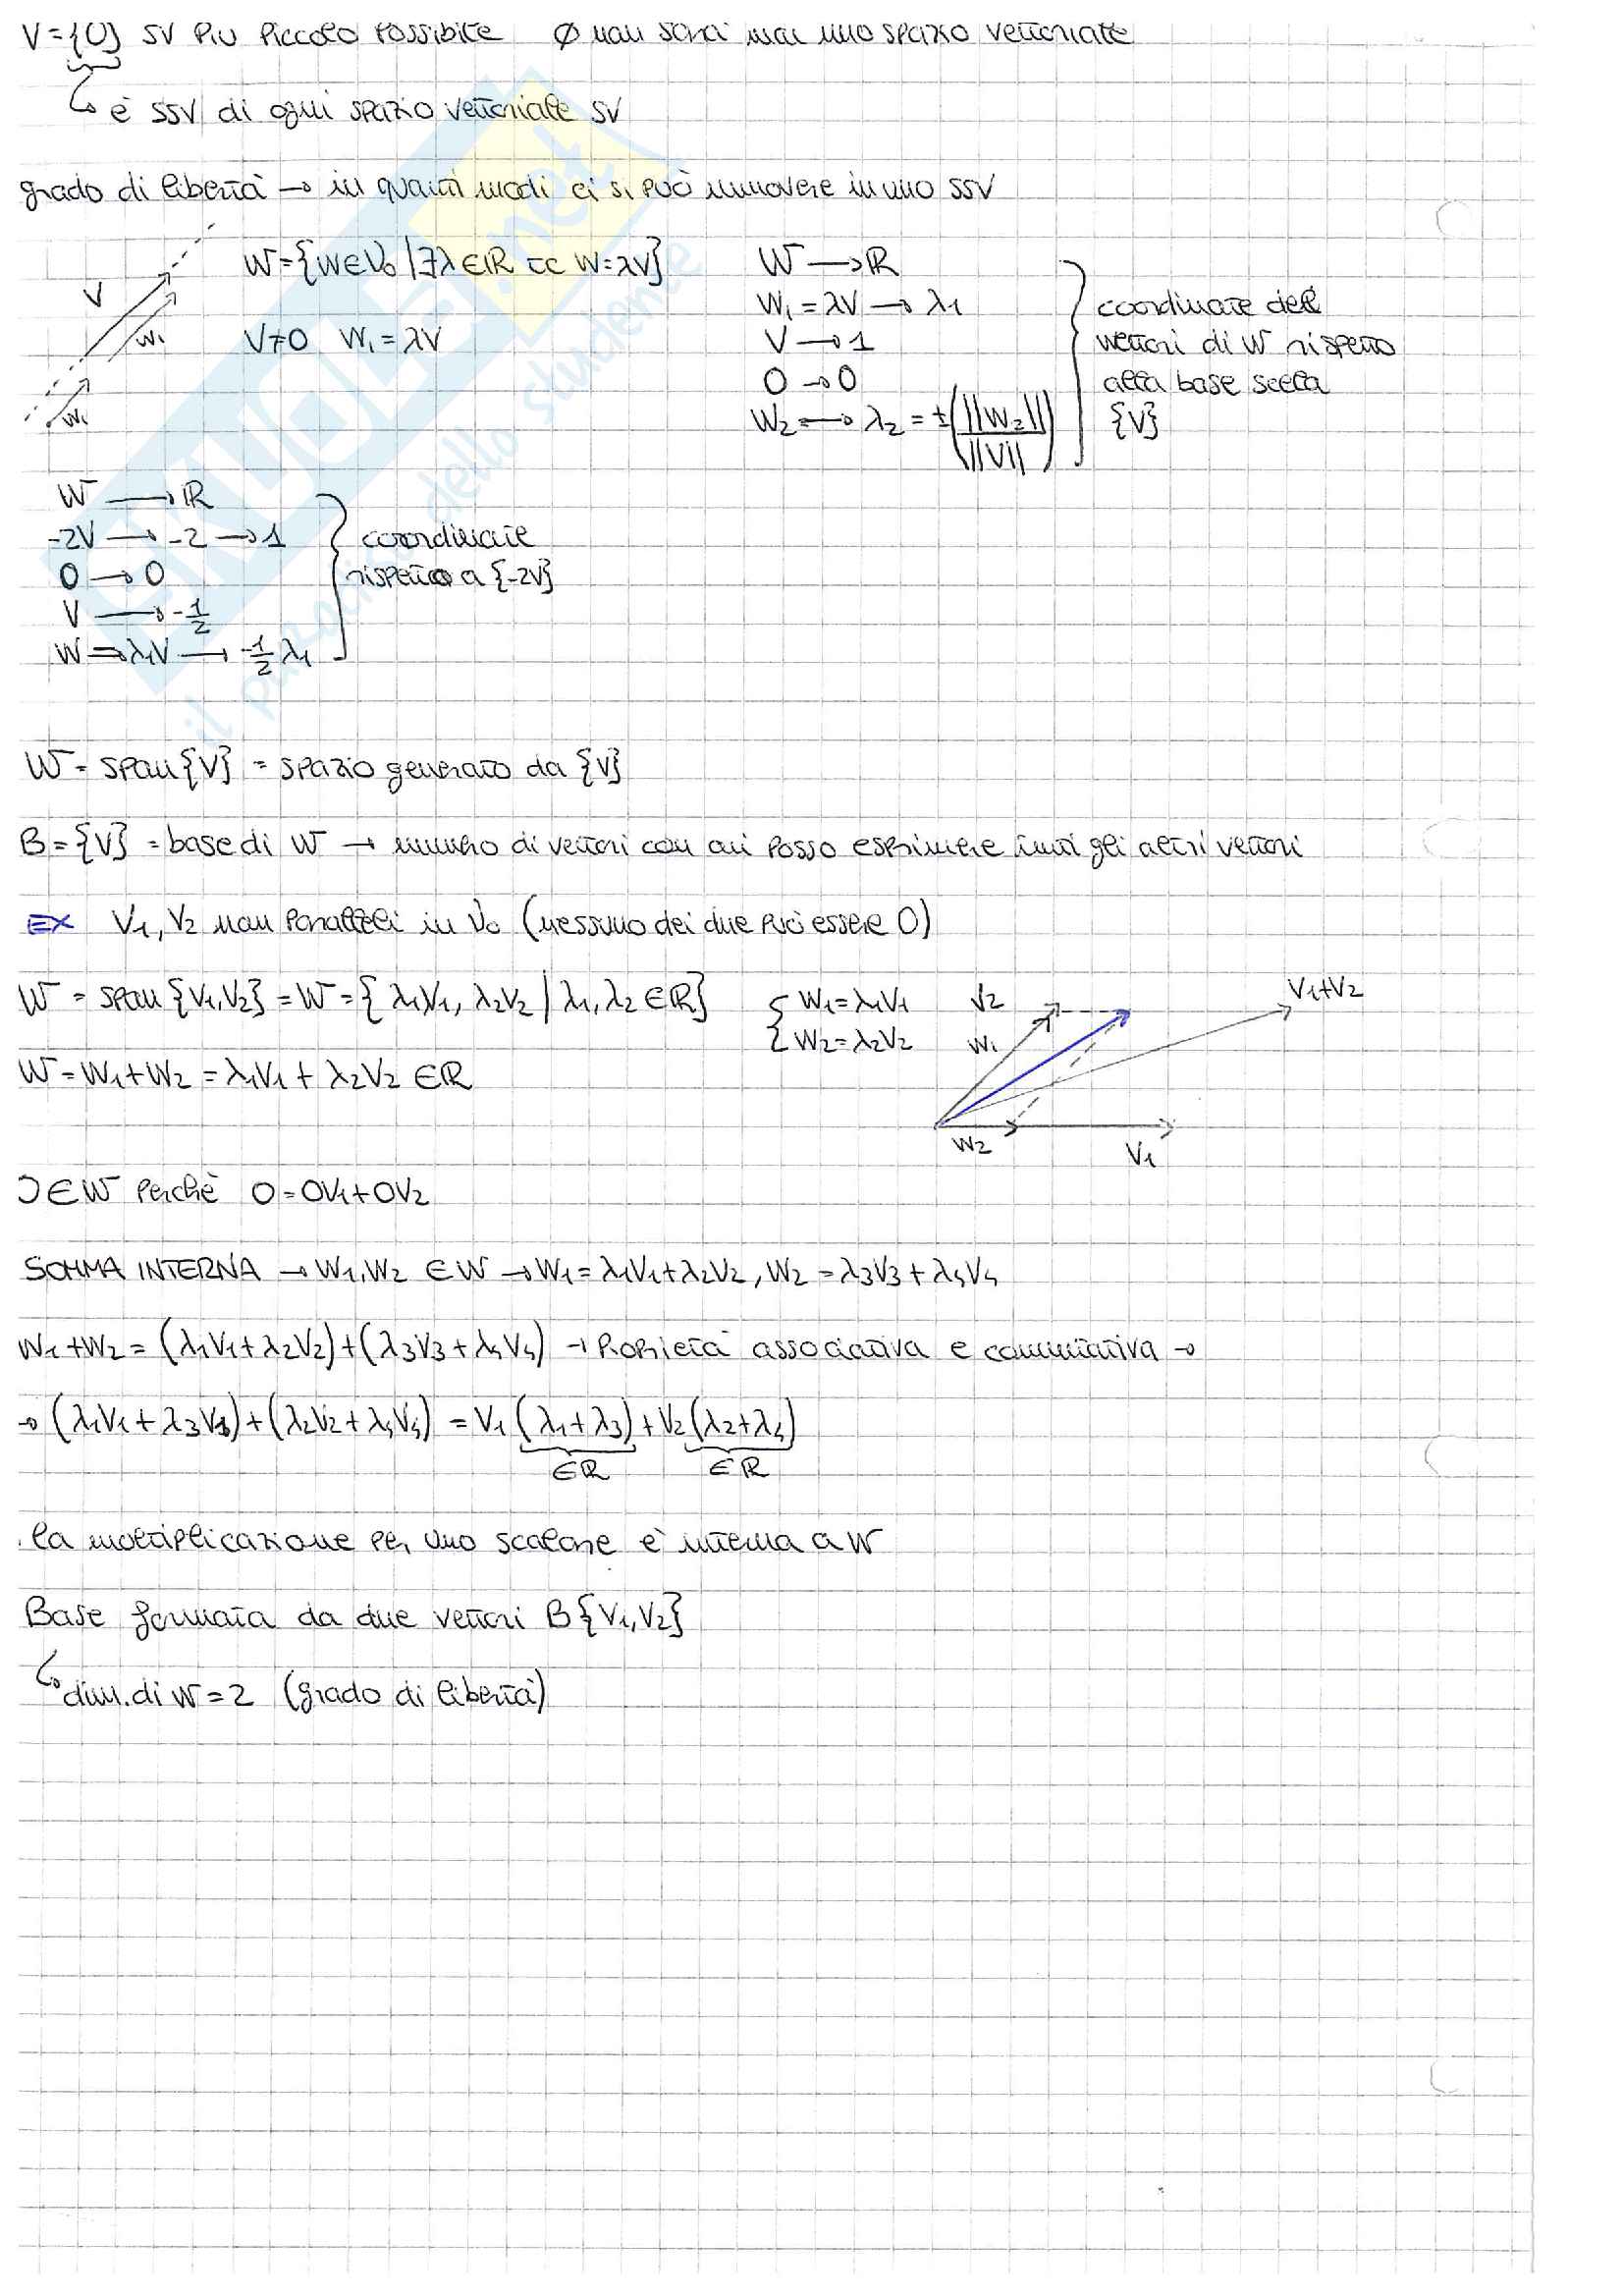 V={0} SV più piccolo possibile ∅ non sarà mai uno spazio vettoriale
è SSV di ogni spazio vettoriale SV
grado di libertà → in quanti modi ci si può muovere in uno SSV
W={w∈V₀ | ∃λ∈ℝ tc w=λv}
V≠0 W₁=λV
V
W₁
W₁
W → ℝ
W₁=λV → λ₁
V → 1
0 → 0
W₂ → λ₂ = ±(||W₂||/||V||)
coordinate dei
vettori di W rispetto
alla base scelta
{V}
W → ℝ
-2V → -2 → 1
0 → 0
V → -1/2
W ⇒ λ₁V → -1/2 λ₁
coordinate
rispetto a {-2V}
W = span{V} = spazio generato da {V}
B={V} = base di W → numero di vettori con cui posso esprimere tutti gli altri vettori
EX V₁, V₂ non paralleli in V₀ (nessuno dei due può essere 0)
W = span{V₁,V₂} = W = {λ₁V₁, λ₂V₂ | λ₁, λ₂ ∈ℝ}
{ W₁=λ₁V₁
W₂=λ₂V₂
V₂
W₁
V₁+V₂
W₂
V₁
W=W₁+W₂ = λ₁V₁ + λ₂V₂ ∈ℝ
0∈W perchè 0=0V₁+0V₂
SOMMA INTERNA → W₁,W₂ ∈W → W₁=λ₁V₁+λ₂V₂, W₂=λ₃V₃+λ₄V₄
W₁+W₂ = (λ₁V₁+λ₂V₂)+(λ₃V₃+λ₄V₄) → Proprietà associativa e commutativa →
→ (λ₁V₁+λ₃V₃)+(λ₂V₂+λ₄V₄) = V₁(λ₁+λ₃)+V₂(λ₂+λ₄)
∈ℝ ∈ℝ
la moltiplicazione per uno scalare è interna a W
Base formata da due vettori B{V₁,V₂}
dim. di W=2 (grado di libertà)
.net
dello studente